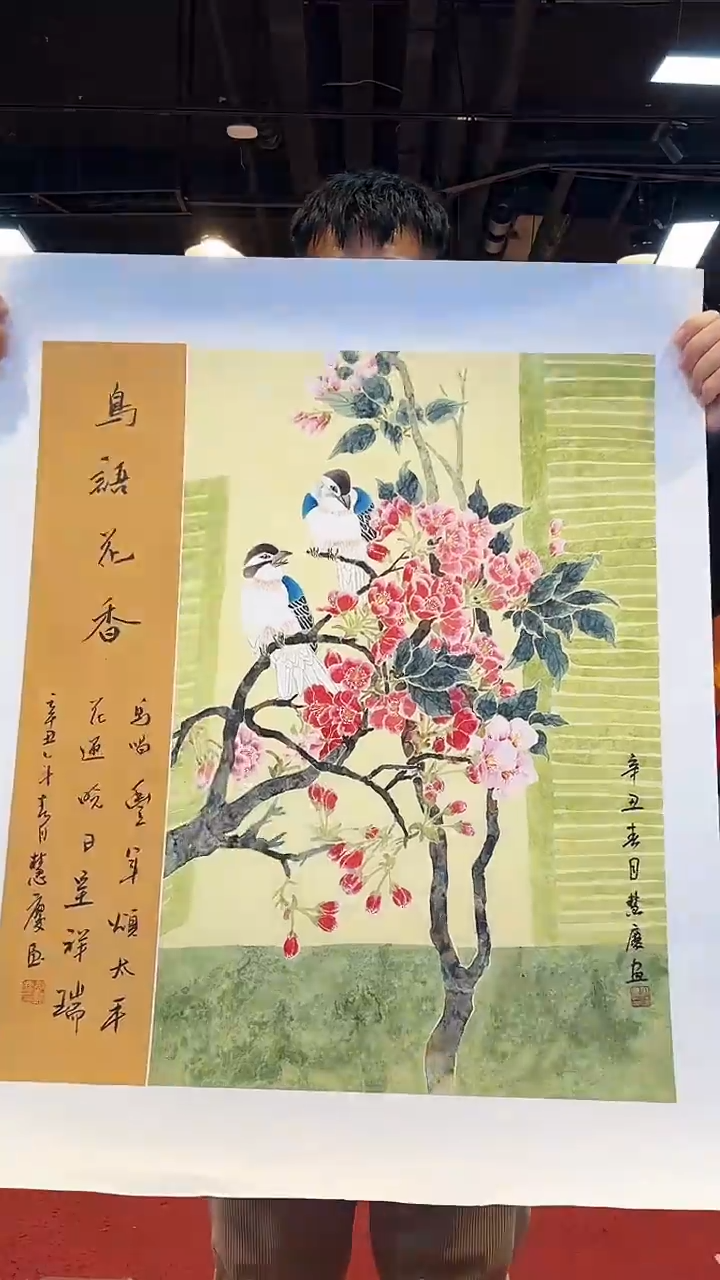 鳥語花香
鳥唱豐年頌太平
花迎晓日呈祥瑞
辛丑之年春日慧慶画
辛丑春日慧慶画